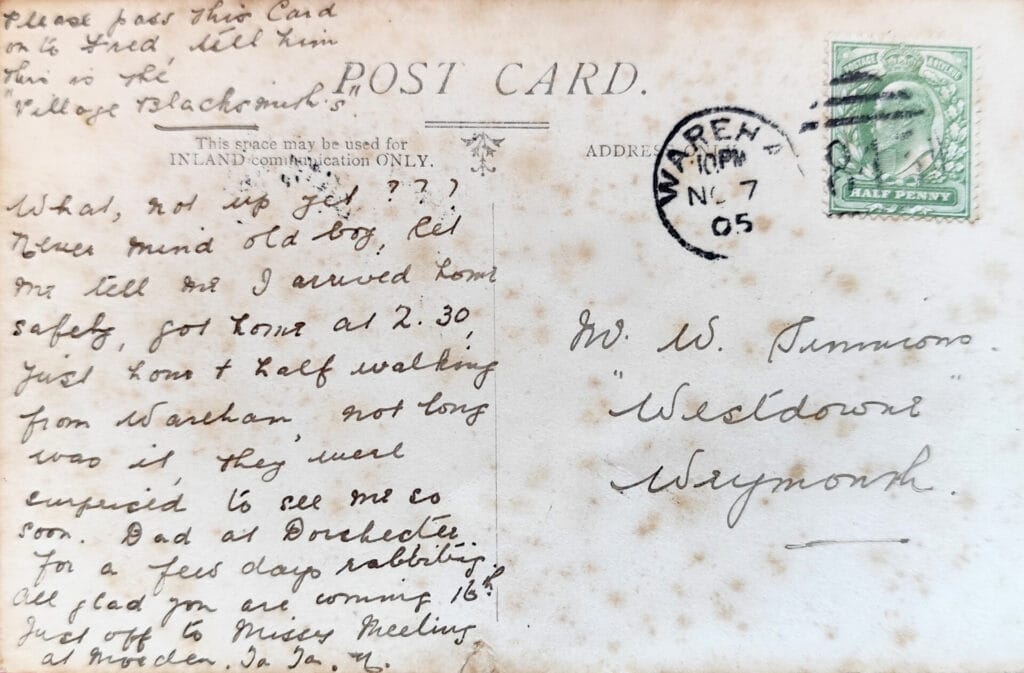 Please pass this Card
on to Fred, tell him
this is the
"Village Blacksmith's"
POST CARD.
This space may be used for
INLAND communication ONLY.
ADDRES
WAREHA
10 PM
NO 7
05
POSTAGE & REVENUE
HALF PENNY
What, not up yet ? ? ?
Never mind old boy, let
me tell me I arrived home
safely, got home at 2.30,
just hour + half walking
from Wareham, not long
was it, they were
surprised to see me so
soon. Dad at Dorchester
for a few days rabbiting.
All glad you are coming 16th
Just off to Missy Meeling
at Morden. Ta Ta.
Mr. W. Simmons.
"Westdowne"
Weymouth.